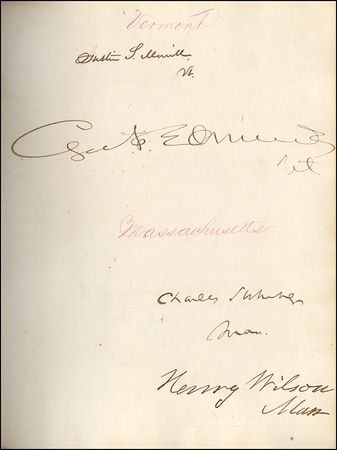 Vermont
Justin S. Morrill
Vt.
Geo. F. Edmunds
Vt
Massachusetts
Charles Sumner
Mass.
Henry Wilson
Mass